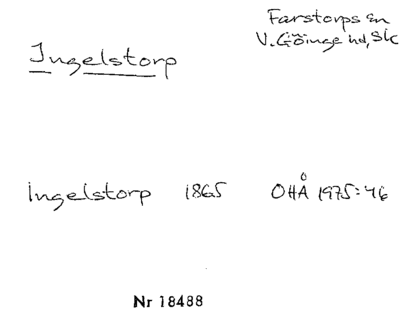 Farstorps sn
V. Göinge hd, Sk
Ingelstorp
Ingelstorp 1865 OHÅ 1975:46
Nr 18488